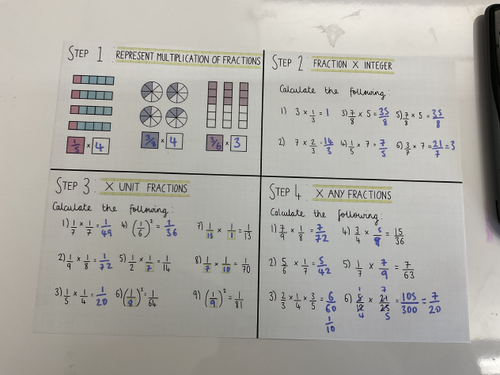 STEP 1 REPRESENT MULTIPLICATION OF FRACTIONS
1/5 × 4
3/8 × 4
3/6 × 3
STEP 2 FRACTION × INTEGER
Calculate the following:
1) 3 × 1/3 = 1 3) 7/8 × 5 = 35/8 5) 7/8 × 5 = 35/8
4) 1/5 × 7 = 7/5 6) 3/7 × 7 = 21/7 = 3
STEP 3 × UNIT FRACTIONS
Calculate the following:
1) 1/7 × 1/7 = 1/49 4) (1/6)² = 1/36 7) 1/13 × 1/1 = 1/13
2) 1/9 × 1/8 = 1/72 5) 1/2 × 1/7 = 1/14 8) 1/7 × 1/10 = 1/70
3) 1/5 × 1/4 = 1/20 6) (1/8)² = 1/64 9) (1/9)² = 1/81
STEP 4 × ANY FRACTIONS
Calculate the following:
1) 7/9 × 1/8 = 7/72 4) 3/4 × 5/9 = 15/36
2) 5/6 × 1/7 = 5/42 5) 1/7 × 7/9 = 7/63
3) 2/3 × 1/4 × 3/5 = 6/60 1/10 6) 5/12 × 21/25 = 105/300 = 7/20